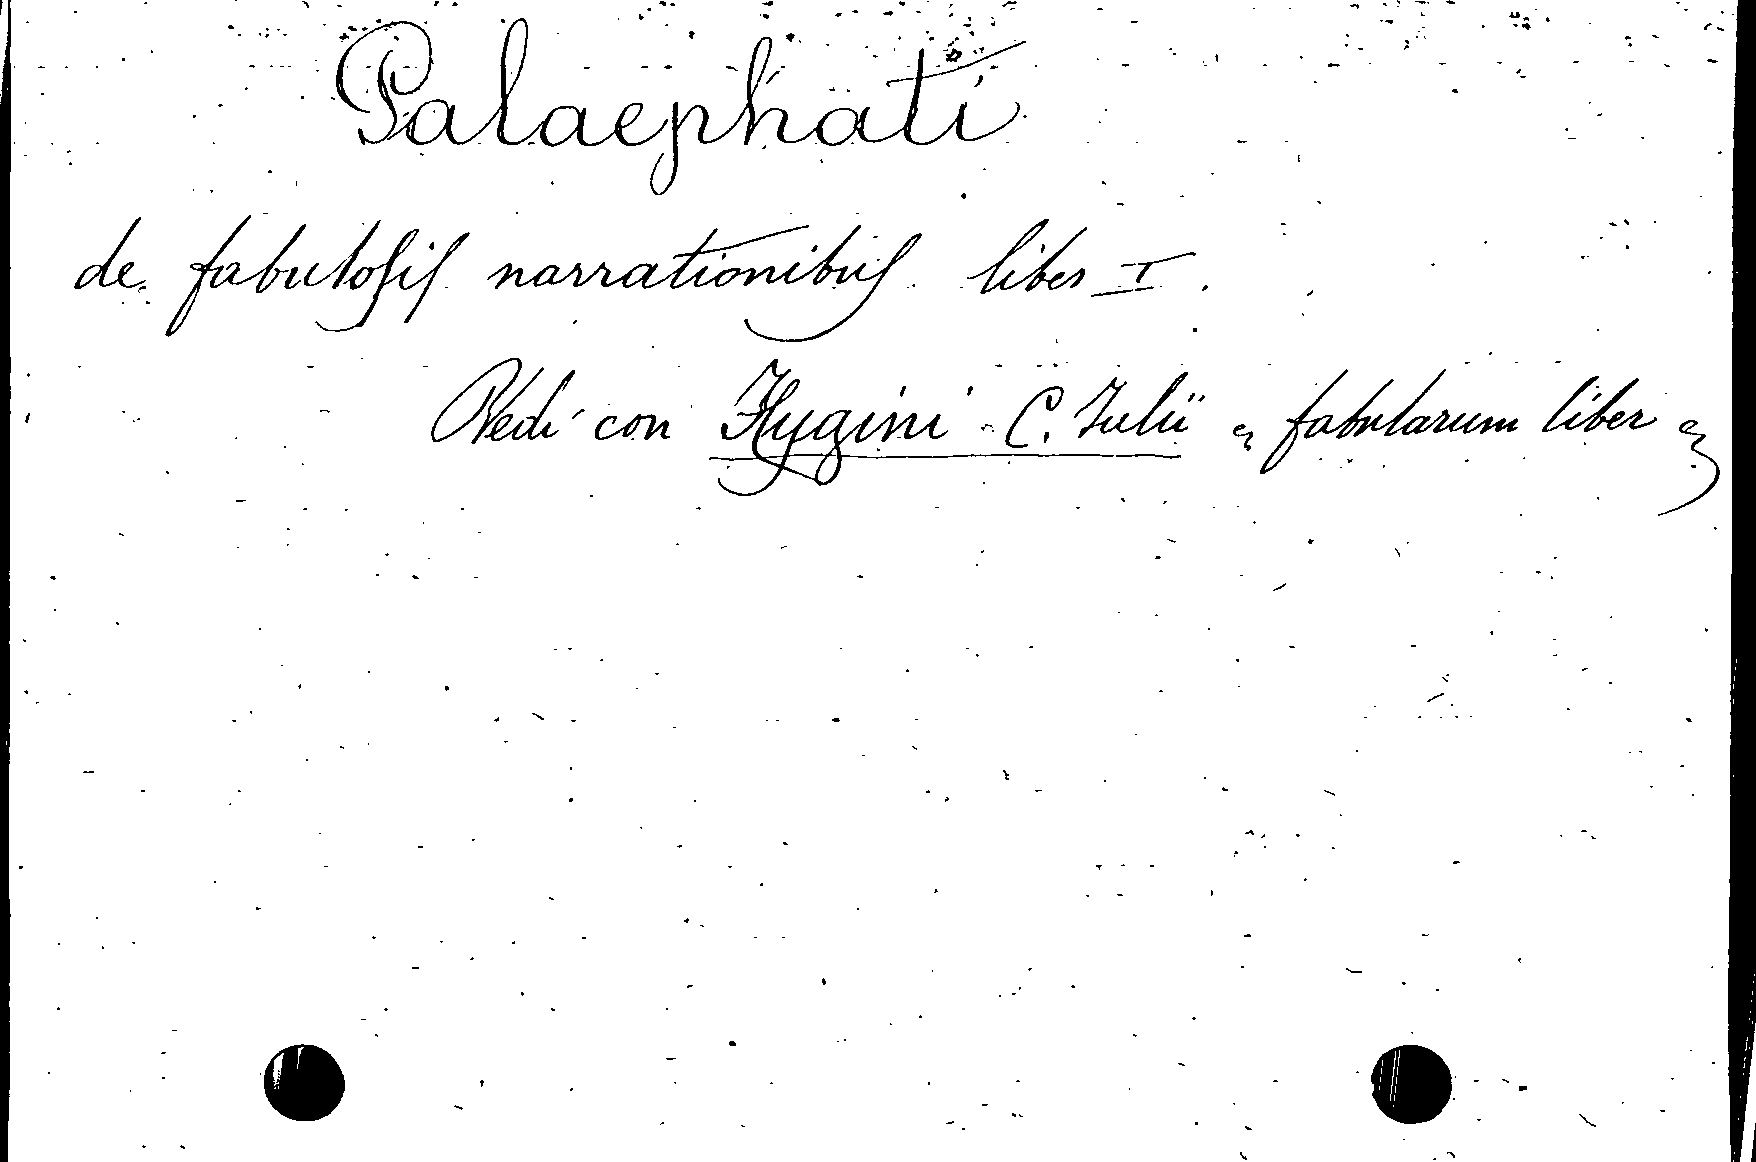 Palaephati
de fabulosis narrationibus liber I.
Vedi con Hygini C. Julii „ fabularum liber „